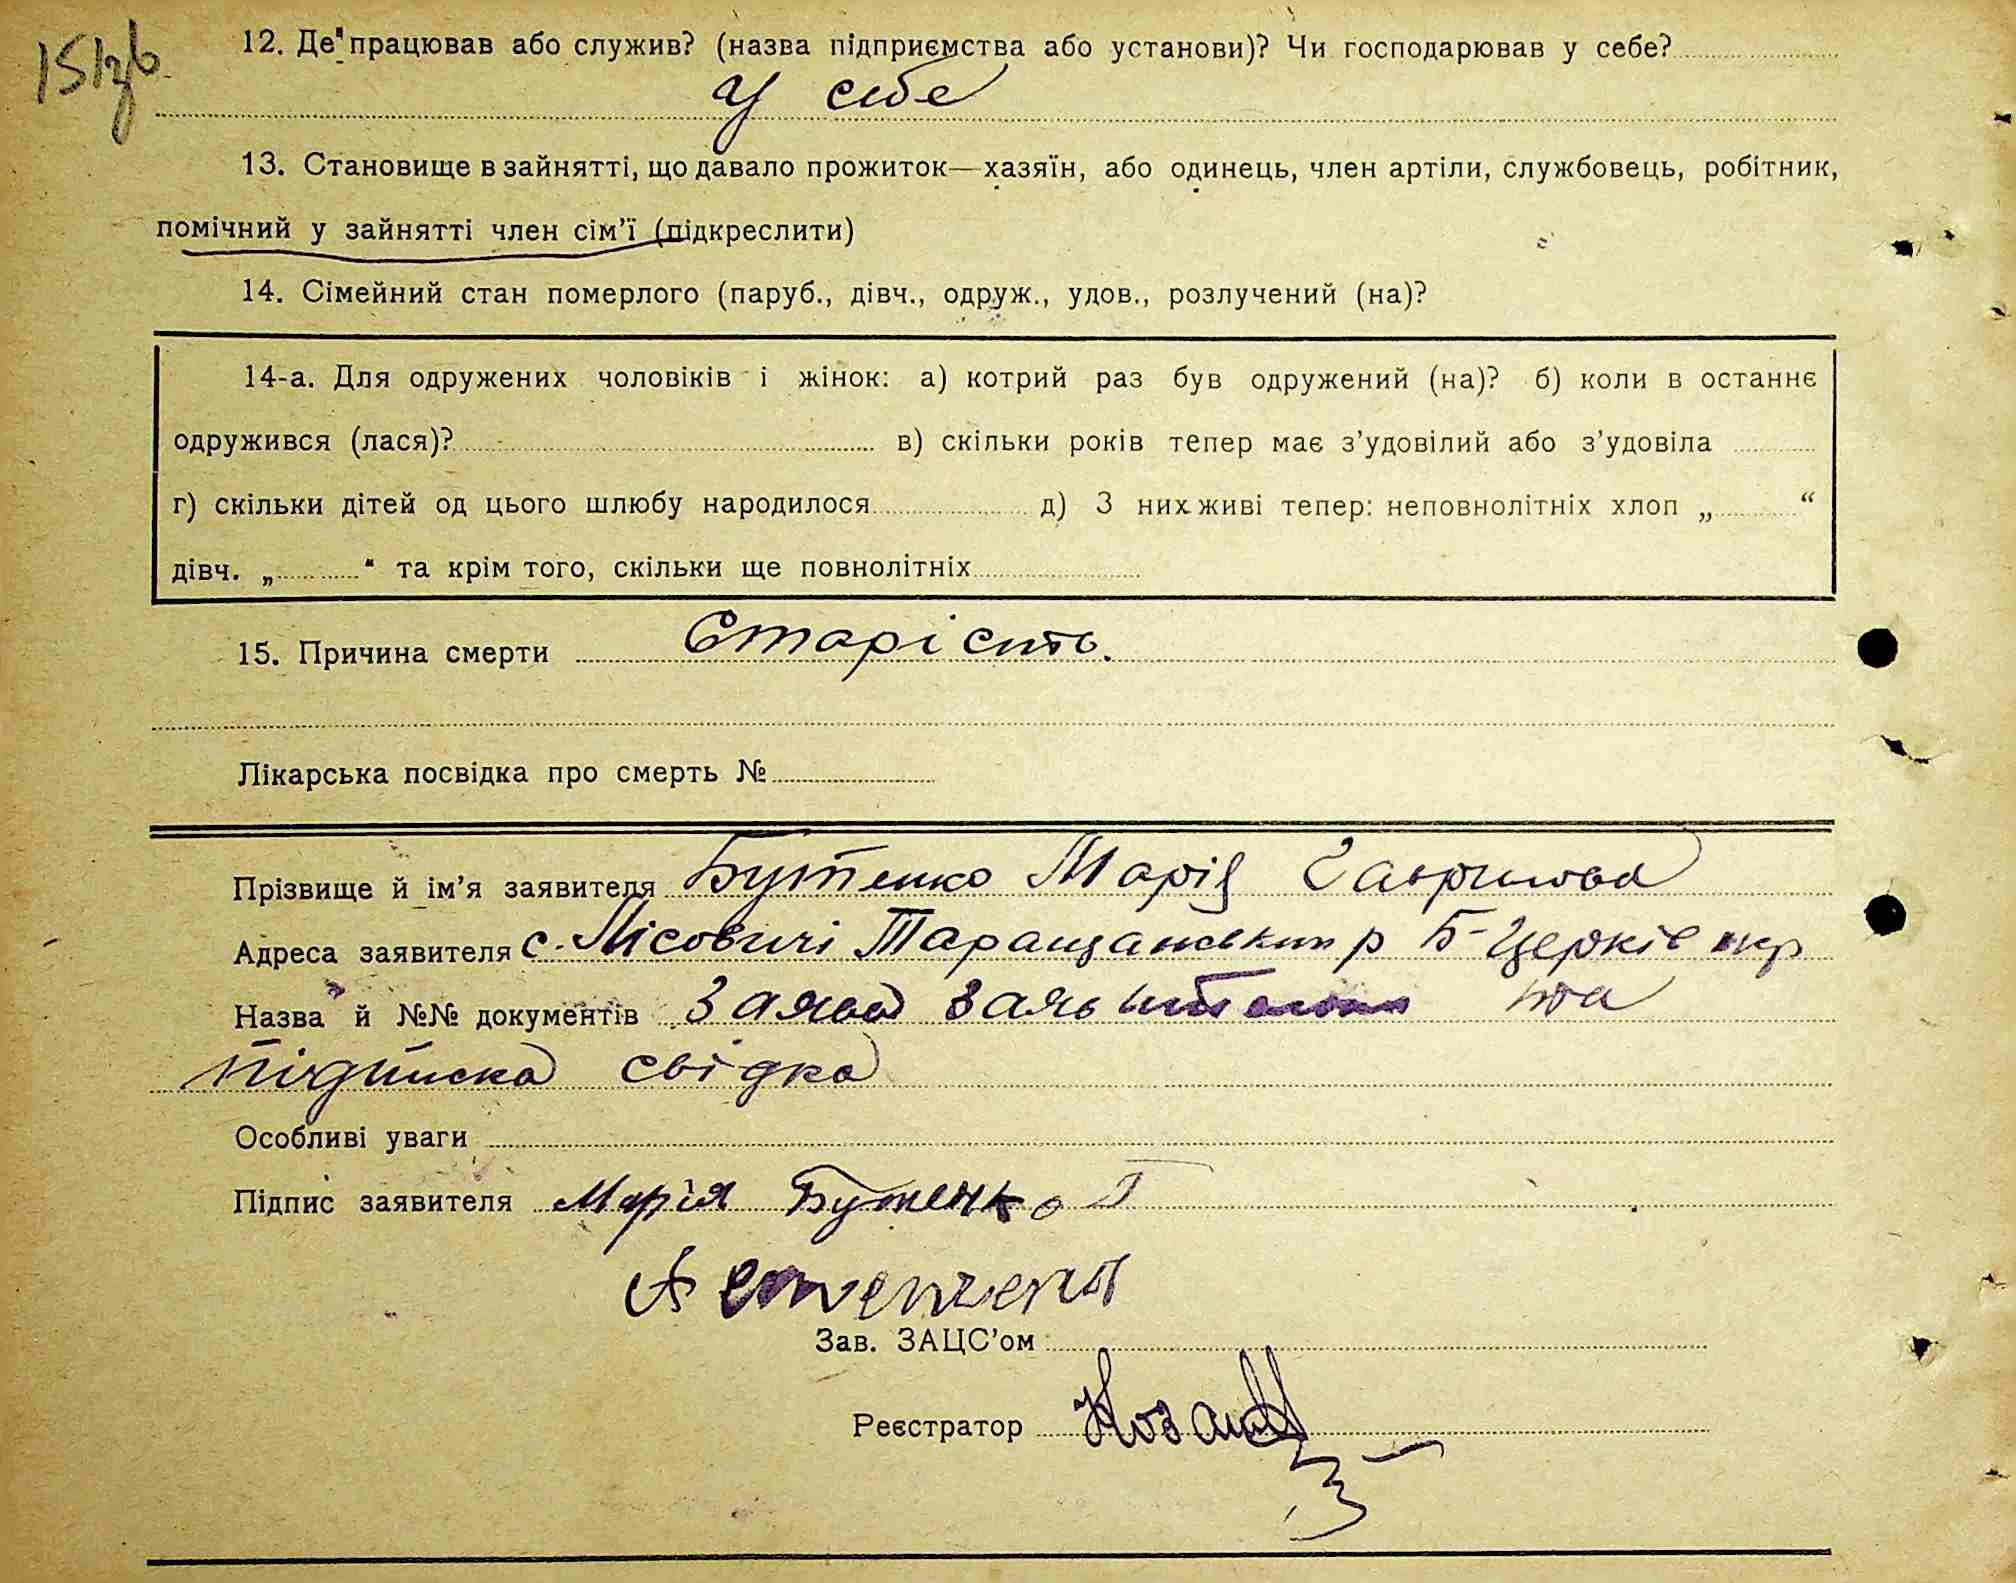 12. Де працював або служив? (назва підприємства або установи)? Чи господарював у себе?
У себе
13. Становище в зайнятті, що давало прожиток—хазяїн, або одинець, член артіли, службовець, робітник,
помічний у зайнятті член сім’ї (підкреслити)
14. Сімейний стан померлого (паруб., дівч., одруж., удов., розлучений (на)?
14-а. Для одружених чоловіків і жінок: а) котрий раз був одружений (на)? б) коли в останнє
одружився (лася)? в) скільки років тепер має з’удовілий або з’удовіла
г) скільки дітей од цього шлюбу народилося д) З них живі тепер: неповнолітніх хлоп „ “
дівч. „ “ та крім того, скільки ще повнолітніх
15. Причина смерти Старість.
Лікарська посвідка про смерть №
Прізвище й ім’я заявителя Бутенко Марія Гаврилова
Адреса заявителя с. Лісовичі Таращанськ р Б-Церків окр
Назва й №№ документів Заява та
підписка свідка
Особливі уваги
Підпис заявителя Марія Бутенко Г
Зав. ЗАЦС’ом
Реєстратор